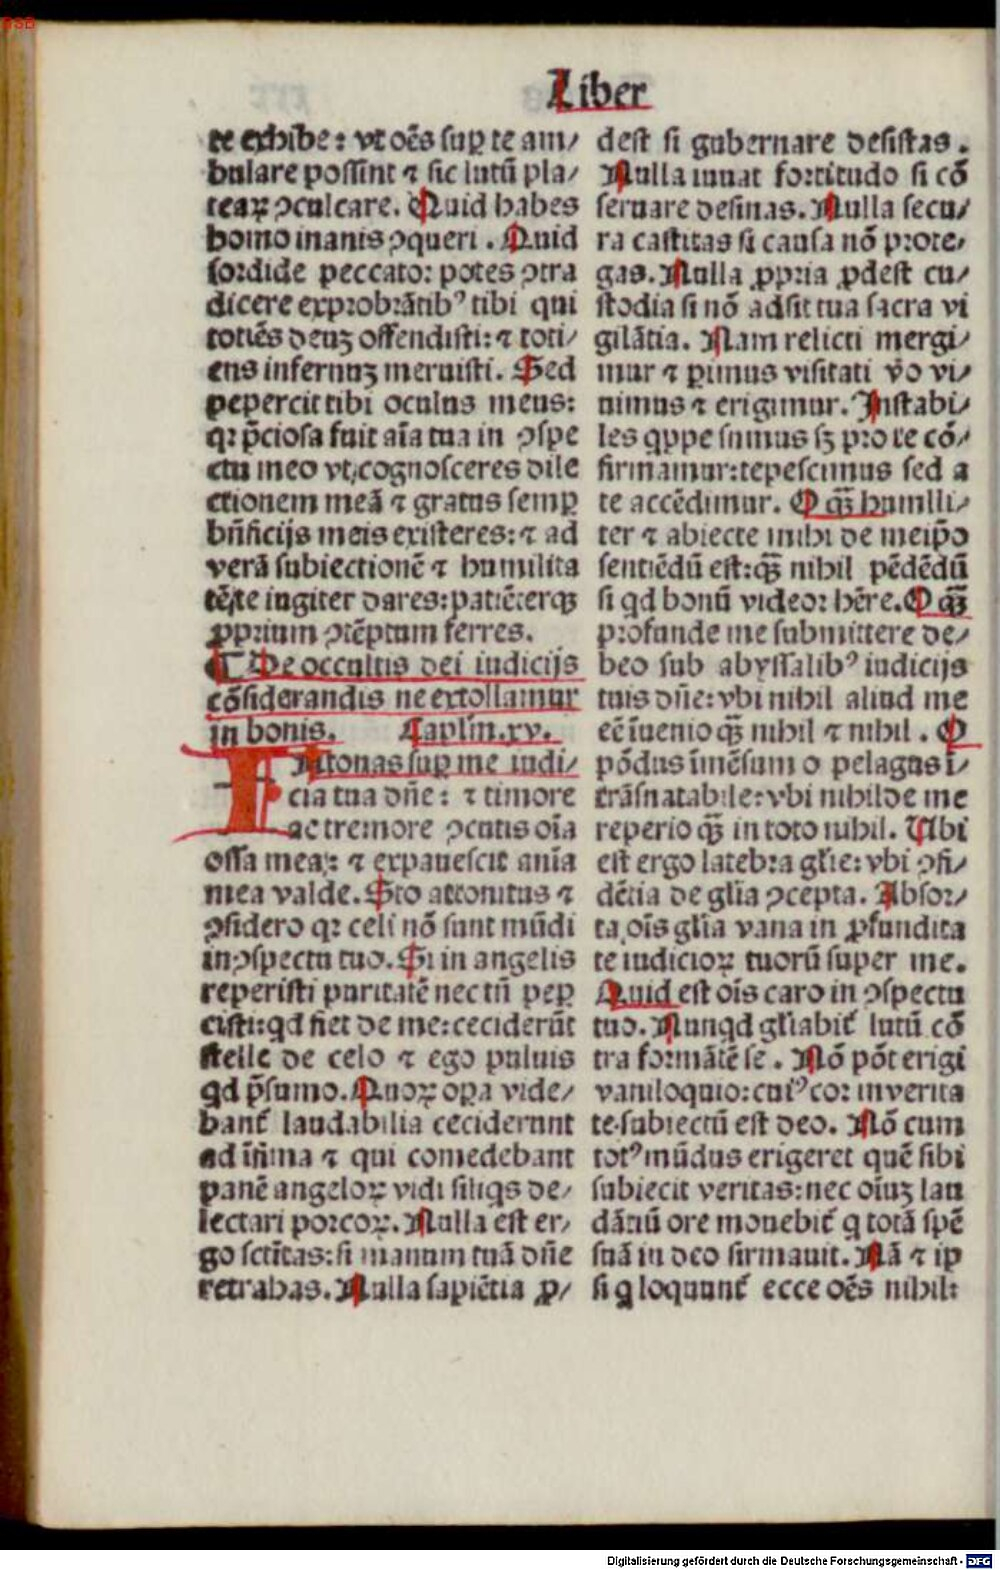 Liber
te exhibe: vt oēs suꝑ te am/
bulare possint ⁊ sic lutū pla/
teaꝝ ꝯculcare. Quid habes
homo inanis ꝯqueri. Quid
sordide peccator potes ꝯtra
dicere exprobrātibꝰ tibi qui
totiēs deuꝫ offendisti: ⁊ toti/
ens infernuꝫ meruisti. Sed
pepercit tibi oculus meus:
qꝛ p̄ciosa fuit aīa tua in ꝯspe
ctu meo vt cognosceres dile
ctionem meā ⁊ gratus semꝑ
bn̄ficijs meis existeres: ⁊ ad
verā subiectionē ⁊ humilita
tē te iugiter dares: patiēterqꝫ
ꝓprium ꝯtēptum ferres.
¶ De occultis dei iudicijs
cōsiderandis ne extollamur
in bonis. Caplm̄.xv.
INtonas suꝑ me iudi/
cia tua dn̄e: ⁊ timore
ac tremore ꝯcutis oīa
ossa mea: ⁊ expauescit anīa
mea valde. Sto attonitus ⁊
ꝯsidero qꝛ celi nō sunt mūdi
in ꝯspectu tuo. Si in angelis
reperisti puritatē nec tn̄ peꝑ
cisti: qd fiet de me: ceciderūt
stelle de celo ⁊ ego puluis
qd p̄sumo. Quoꝝ oꝑa vide/
bant̄ laudabilia ceciderunt
ad īfima ⁊ qui comedebant
panē angeloꝝ vidi siliqs de/
lectari porcoꝝ. Nulla est er/
go sctītas: si manum tuā dn̄e
retrahas. Nulla sapiētia ꝓ/
dest si gubernare desistas.
Nulla iuuat fortitudo si cō
seruare desinas. Nulla secu/
ra castitas si causa nō prote/
gas. Nulla ꝓpria ꝓdest cu/
stodia si nō adsit tua sacra vi
gilātia. Nam relicti mergi/
mur ⁊ ꝑimus visitati v̄o vi/
uimus ⁊ erigimur. Instabi/
les qppe sumus sꝫ pro te cō/
firmamur: tepescimus sed a
te accēdimur. O qꝫ̄ humili/
ter ⁊ abiecte mihi de meip̄o
sentiēdū est: qꝫ̄ nihil pēdēdū
si qd bonū videor hēre. O qꝫ̄
profunde me submittere de/
beo sub abyssalibꝰ iudicijs
tuis dn̄e: vbi nihil aliud me
eē īuenio qꝫ̄ nihil ⁊ nihil. O
pōdus īmēsum o pelagus ī/
trāsnatabile: vbi nihil de me
reperio qꝫ̄ in toto nihil. Ubi
est ergo latebra gl̄ie: vbi ꝯfi/
dētia de gl̄ia ꝯcepta. Absor/
ta oīs gl̄ia vana in ꝓfundita
te iudicioꝝ tuorū super me.
Quid est oīs caro in ꝯspectu
tuo. Nunqd gl̄iabit̄ lutū cō
tra formātē se. Nō pōt erigi
vaniloquio: cuiꝰ cor in verita
te subiectū est deo. Nō eum
totꝰ mūdus erigeret quē sibi
subiecit veritas: nec oīuꝫ lau
dātiū ore mouebit̄ q totā spē
suā in deo firmauit. Nā ⁊ ip
si q loquunt̄ ecce oēs nihil:
Digitalisierung gefördert durch die Deutsche Forschungsgemeinschaft - DFG